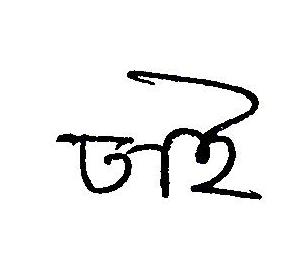 তাই